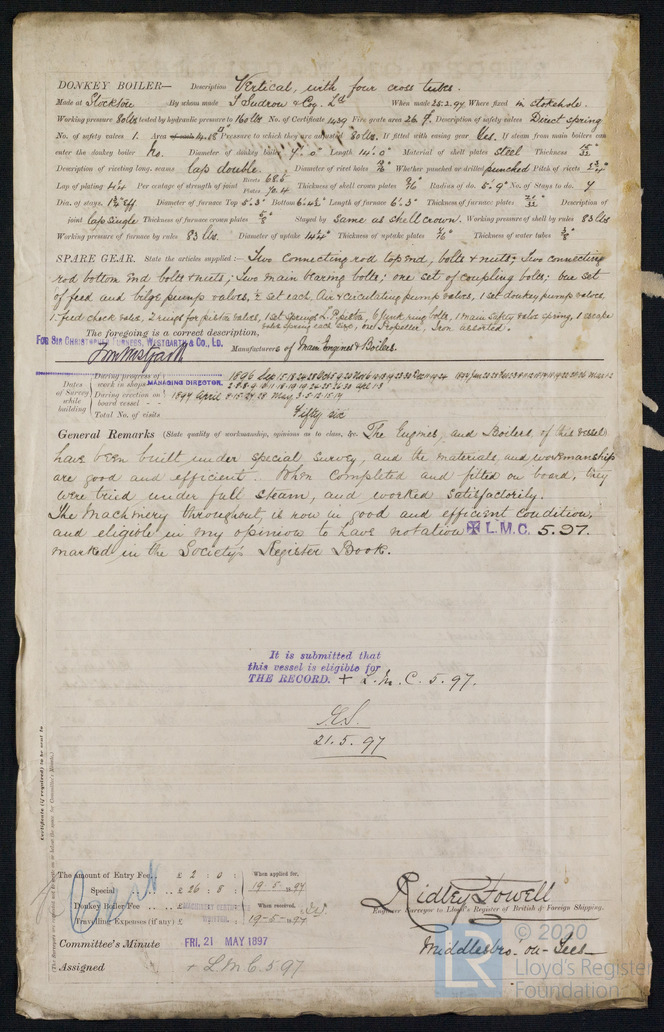 DONKEY BOILER— Description Vertical, with four cross tubes.
Made at Stockton By whom made T Sudron & Coy. Ld When made 25.2.97 Where fixed in stokehole.
Working pressure 80lbs tested by hydraulic pressure to 160 lbs No. of Certificate 1439 Fire grate area 26.7 Description of safety valves Direct spring
No. of safety valves 1. Area 4.18" Pressure to which they are adjusted 80lbs. If fitted with easing gear Yes. If steam from main boilers can
enter the donkey boiler No. Diameter of donkey boiler 7'.0" Length 14'.0" Material of shell plates steel Thickness 15/32
Description of riveting long. seams lap double. Diameter of rivet holes Whether punched or drilled punched Pitch of rivets
Lap of plating 4 1/4 Per centage of strength of joint Rivets 68.5 Plates 70.4 Thickness of shell crown plates 9/16 Radius of do. 5'.9" No. of Stays to do. 7
Dia. of stays. Diameter of furnace Top 5'.3" Bottom Length of furnace 6'.3" Thickness of furnace plates Description of
joint lap single Thickness of furnace crown plates 5/8 Stayed by same as shell crown. Working pressure of shell by rules 83 lbs
Working pressure of furnace by rules 83 lbs. Diameter of uptake 14 1/4 Thickness of uptake plates 7/16 Thickness of water tubes 3/8
SPARE GEAR. State the articles supplied:— Two connecting rod top end, bolts & nuts; Two connecting
rod bottom end bolts & nuts; Two main bearing bolts; one set of coupling bolts; one set
of feed and bilge pump valves, 1/2 set each Air & circulating pump valves, 1 set donkey pump valves
1 feed check valve, 2 rings for piston valves, 1 set springs H.P. piston, 6 junk ring bolts, 1 main safety valve spring, 1 escape
valve spring each size, one Propeller, Iron assorted.
The foregoing is a correct description,
FOR SIR CHRISTOPHER FURNESS, WESTGARTH & CO., LD.
Tom Westgarth Manufacturers of Main Engines & Boilers.
MANAGING DIRECTOR.
Dates of Survey while building
During progress of work in shops - - 1896
During erection on board vessel - - 1897 April 8.15.24.28 May 3.5.12.15.14
Total No. of visits Fifty six
General Remarks (State quality of workmanship, opinions as to class, &c. The Engines, and Boilers, of this vessel
have been built under special survey, and the materials, and workmanship
are good and efficient. When completed and fitted on board, they
were tried under full steam, and worked satisfactorily.
The Machinery throughout, is now in good and efficient condition,
and eligible in my opinion to have notation ✠ L.M.C. 5.97.
marked in the Society's Register Book.
It is submitted that
this vessel is eligible for
THE RECORD. + L.M.C. 5.97.
21.5.97
Certificate (if required) to be sent to
(The Surveyors are requested not to write on or below the space for Committee's Minute.)
The amount of Entry Fee.. £ 2 : 0 : When applied for,
Special .. £ 26 : 8 : 19.5.1897
Donkey Boiler Fee .. £ When received,
Travelling Expenses (if any) £ 19-5-1897
Ridley Fowell
Engineer Surveyor to Lloyd's Register of British & Foreign Shipping.
Middlesbro'-on-Tees
Committee's Minute FRI. 21 MAY 1897
Assigned + L.M.C. 5.97
© 2020
LR Lloyd's Register
Foundation